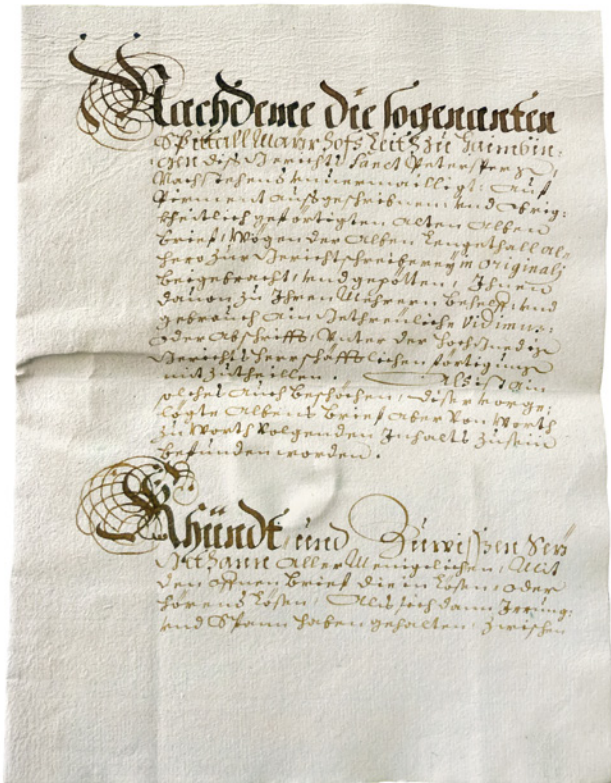 Nachdeme die sogenanten
Spittall Mayrhofs Leith zu Haimbin:
gen diß Gerichts Sanct Petersperg,
Nachstehendt unuermailligt: auf
Pirment aufgeschribnen und obrig:
kheitlich gefertigten alten Alben
Brief, wögen der Alben Lengethall al:
hero zur Gerichtschreiberey in originali
beigebracht, und gepötten, Ihnen
dauon zu Ihren Mehrern behelf, und
gebrauch ain gethreuliche Vidimus:
oder Abschrifft, unter der Hochgnedig
Gerichtsherrschafftlichen förtigung
mitzutheillen. Als ist ain
solches auch beschöchen, diser vorge:
legte Albens Brief aber von Worth
zu Worth volgenden Inhalts zu sein
befunden worden.
Khündt und Zuwissen Sey
Gethann aller Menigclichen, Mit
den offnen Brief die in Lösen, oder
hörend Lösen, Als sich dann Irrung:
und Spann haben gehalten, zwischen